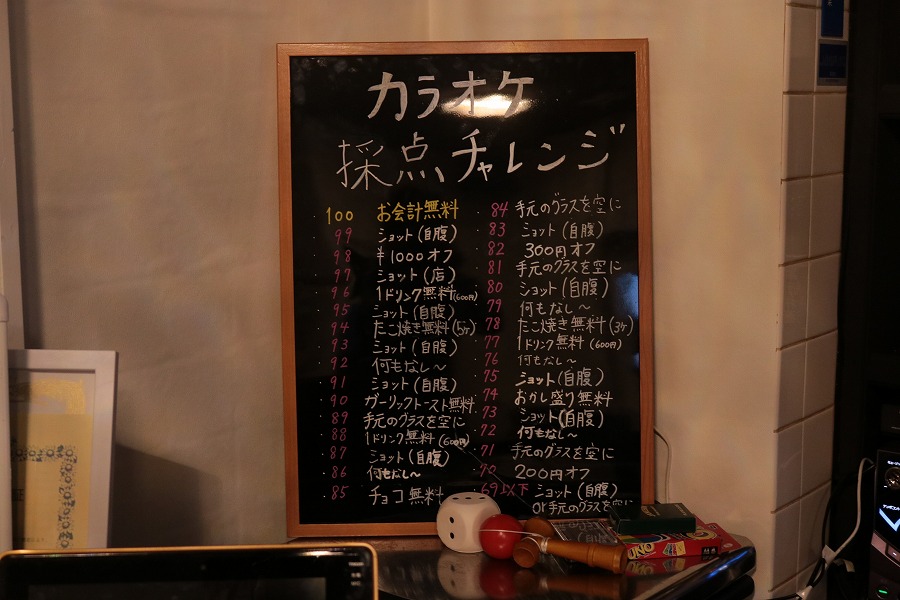 カラオケ
採点チャレンジ
100 お会計無料
99 ショット(自腹)
98 ¥1000オフ
97 ショット(店)
96 1ドリンク無料(600円)
95 ショット(自腹)
94 たこ焼き無料(5ケ)
93 ショット(自腹)
92 何もなし〜
91 ショット(自腹)
90 ガーリックトースト無料
89 手元のグラスを空に
88 1ドリンク無料(600円)
87 ショット(自腹)
86 何もなし〜
85 チョコ無料
84 手元のグラスを空に
83 ショット(自腹)
82 300円オフ
81 手元のグラスを空に
80 ショット(自腹)
79 何もなし〜
78 たこ焼き無料(3ケ)
77 1ドリンク無料(600円)
76 何もなし〜
75 ショット(自腹)
74 おかし盛り無料
73 ショット(自腹)
72 何もなし〜
71 手元のグラスを空に
70 200円オフ
69以下 ショット(自腹)
or手元のグラスを空に
UNO